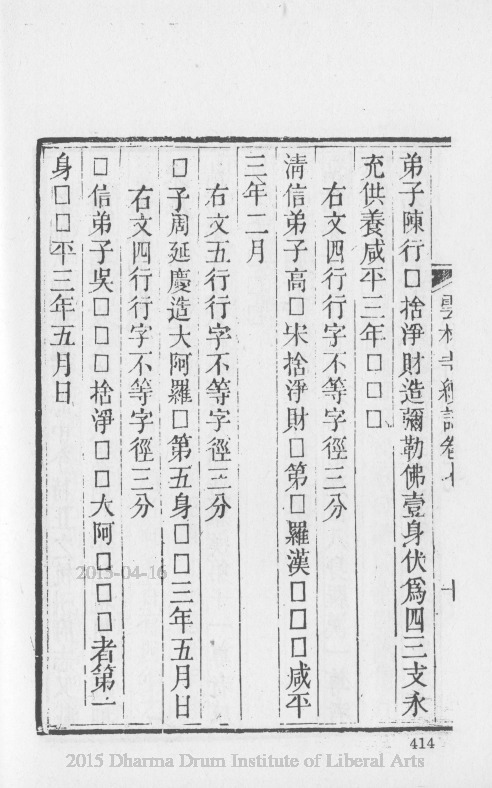 雲林寺續誌卷
弟子陳行□捨淨財造彌勒佛壹身伏爲四三支永
充供養咸平三年□□□
右文四行行字不等字徑三分
清信弟子高□宋捨淨財□第□羅漢□□□咸平
三年二月
右文五行行字不等字徑三分
□子周延慶造大阿羅□第五身□□三年五月日
右文四行行字不等字徑三分
□信弟子吳□□□捨淨□□大阿□□□者第一
身□□平三年五月日
414
2015-04-16
2015 Dharma Drum Institute of Liberal Arts